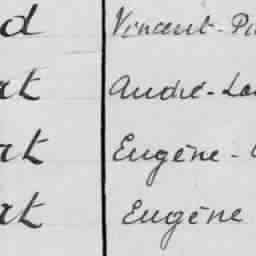 d Vincent-Pi
rt André-La
rt Eugène-
rt Eugène